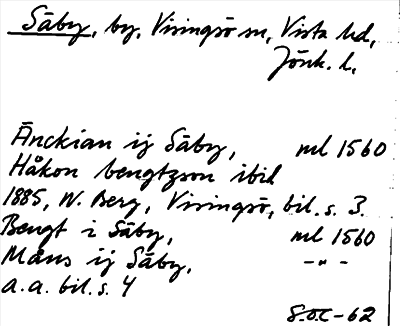 Säby, by, Visingsö sn, Vista hd,
Jönk. l.
Änckian ij Säby, ml 1560
Håkon bengtzson ibid
1885, W. Berg, Visingsö, bil. s. 3.
Bengt i Säby, ml 1560
Måns ij Säby, -"-
a.a. bil. s. 4
S.O.C-62